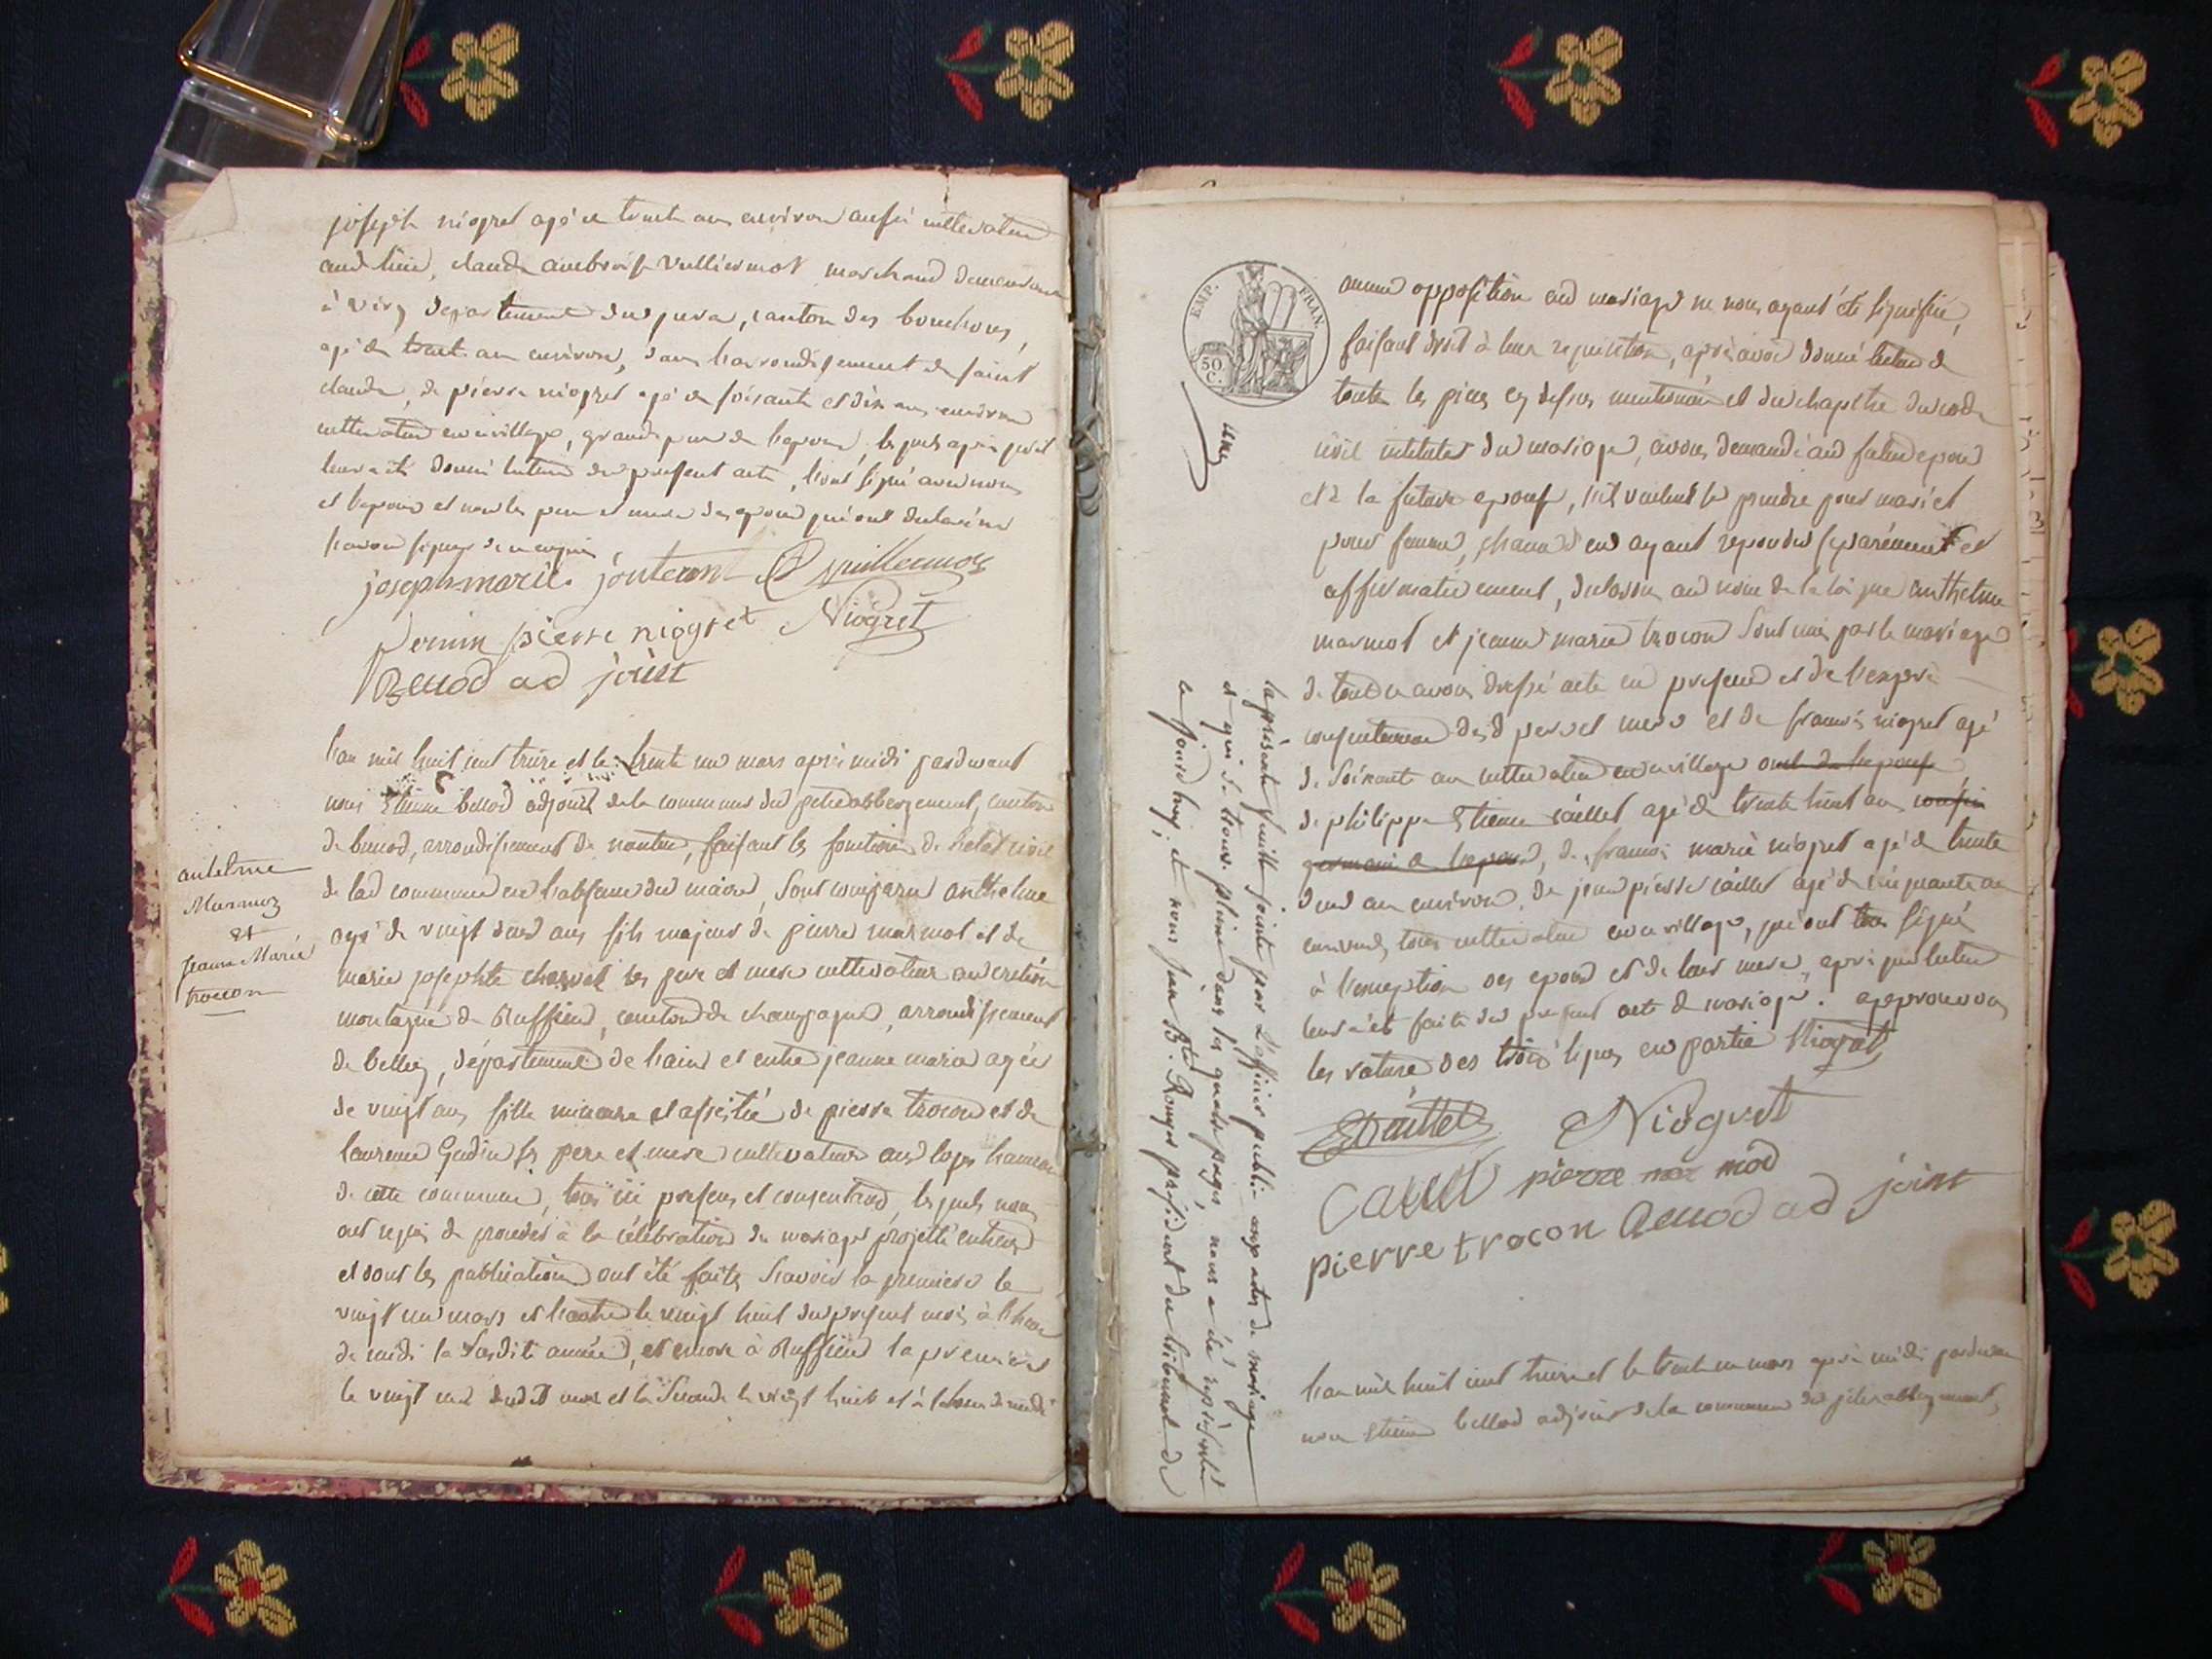 joseph niogret agé de trente ans environ aussi cultivateur
aud lieu, claude ambroise Vulliermot marchand demeurant
à viry departement du jura, canton des bouchoux,
agé de trente ans environ, dans l'arrondissement de saint
claude, de pierre niogret agé de soisante et dix ans environ
cultivateur en ce village, grand pere de l'epouse, lesquels apres qu'il
leur a été donné lecture du present acte, l'ont signé avec nous
et l'epoux et non les pere et mere des epoux qui ont declaré ne
savoir signer de ce requis,
joseph marie jonteront Vuillermoz
Perrin pierre niogret Niogret
Benod ad joint
l'an mil huit cent treize et le trente un mars après midi pardevant
nous Etienne benod adjoint de la commune du petit abbergement, canton
de brenod, arrondissement de nantua, faisant les fonctions de l'etat civil
de lad commune en l'absence du maire, sont comparu anthelme
agé de vingt deux ans fils majeur de pierre marmot et de
marie josephte charvet ses pere et mere cultivateurs au cretin
montagne de Ruffieu, canton de champagne, arrondissement
de belley, département de l'ain et entre jeanne marie agée
de vingt ans fille mineure et assistée de pierre trocon et de
laurence Godin ses pere et mere cultivateurs aux loges hameau
de cette commune, tous ici presens et consentans, lesquels nous
ont requis de proceder à la célébration du mariage projetté entr'eux
et dont les publications ont été faites sçavoir la premiere le
vingt un mars et l'autre le vingt huit du present mois à l'heure
de midi la susdite année, et encore à Ruffieu la premiere
le vingt un dudit mois et la seconde le vingt huit et à l'heure de midi
antelme
Marmoz
et
jeanne Marie
trocon
EMP. FRAN.
50 C.
aucune opposition aud mariage ne nous ayant été signifiée,
faisant droit à leur requisition, après avoir donné lecture de
toutes les pieces cy dessus mentionnées et du chapitre du code
civil intitulé du mariage, avons demandé au futur epoux
et à la future epouse, s'ils veulent se prendre pour mari et
pour femme, chacun d'eux ayant repondu separément et
affirmativement, declarons au nom de la loi que anthelme
marmot et jeanne marie trocon sont unis par le mariage
de tout ce avons dressé acte en presence et de l'exprès
consentement desd peres et mere et de francois niogret agé
de soixante ans cultivateur en ce village oncle de l'epouse
de philippe Etienne caillet agé de trente huit ans cousin
germain de l'epoux, de francois marie niogret agé de trente
deux ans environ, de jean pierre caillet agé de cinquante ans
environ, tous cultivateurs en ce village, qui ont tous signé
à l'exception des epoux et de leur mere, après que lecture
leur a été faite du present acte de mariage. approuvons
les rature des trois lignes en partie Niogret
Caillet Niogret
Caillet pierre mar mod
pierre trocon Benod ad joint
l'an mil huit cent treize et le trente un mars après midi pardevant
nous Etienne benod adjoint de la commune du petit abbergement,
la présente feuille jointe par L'officier public aux actes de mariage
et qui se trouve pleine dans les quatre pages, nous a été représentée
ce jourd'huy, et nous Jean B.te Rouyer président du tribunal de